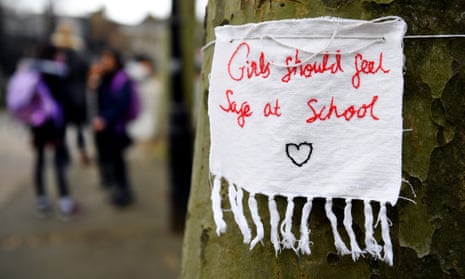 Girls should feel
Safe at School